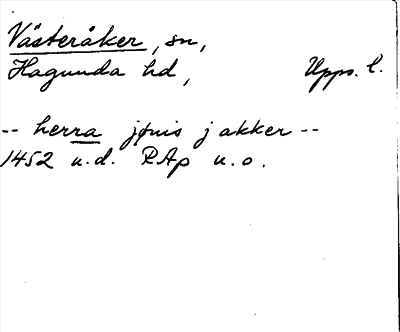 Västeråker, sn,
Hagunda hd, Upps. l.
-- herra jønis j akker --
1452 u.d. RAp u.o.